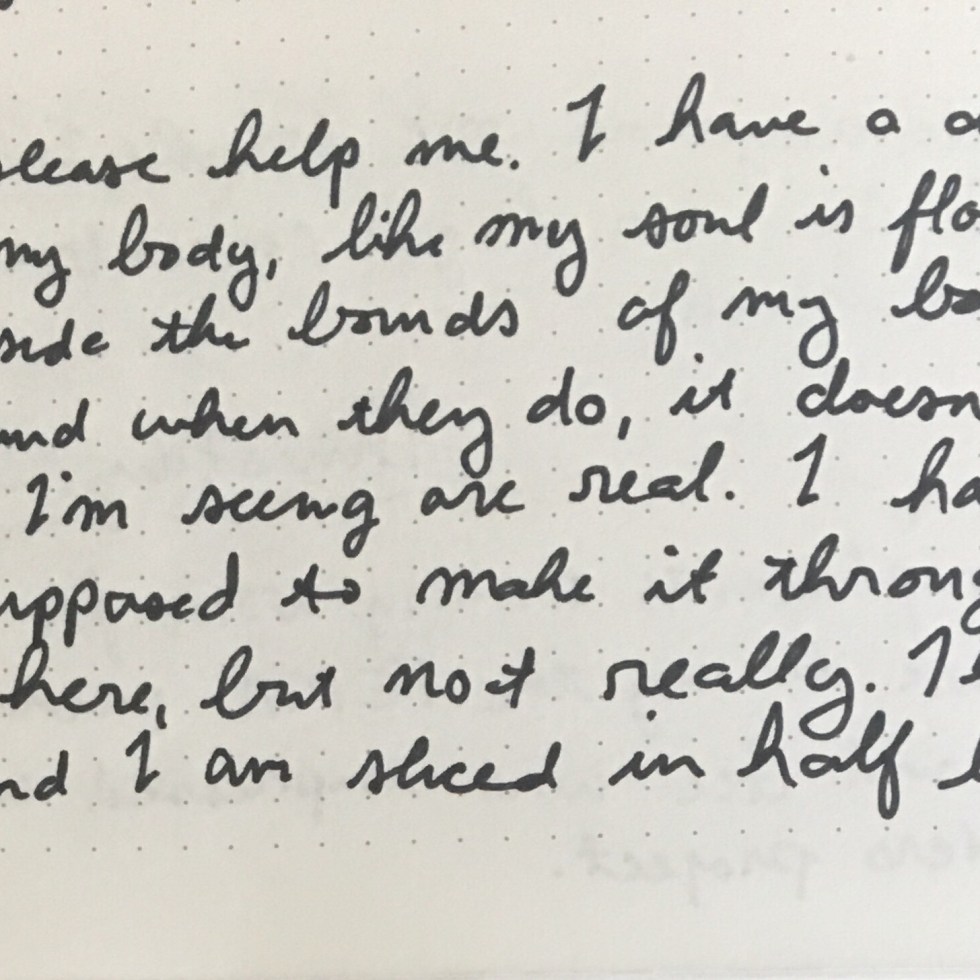 please help me. I have a
my body, like my soul is
the bounds of my
and when they do, it
I'm seeing are real. I
supposed to make it
here, but not really.
and I am sliced in half